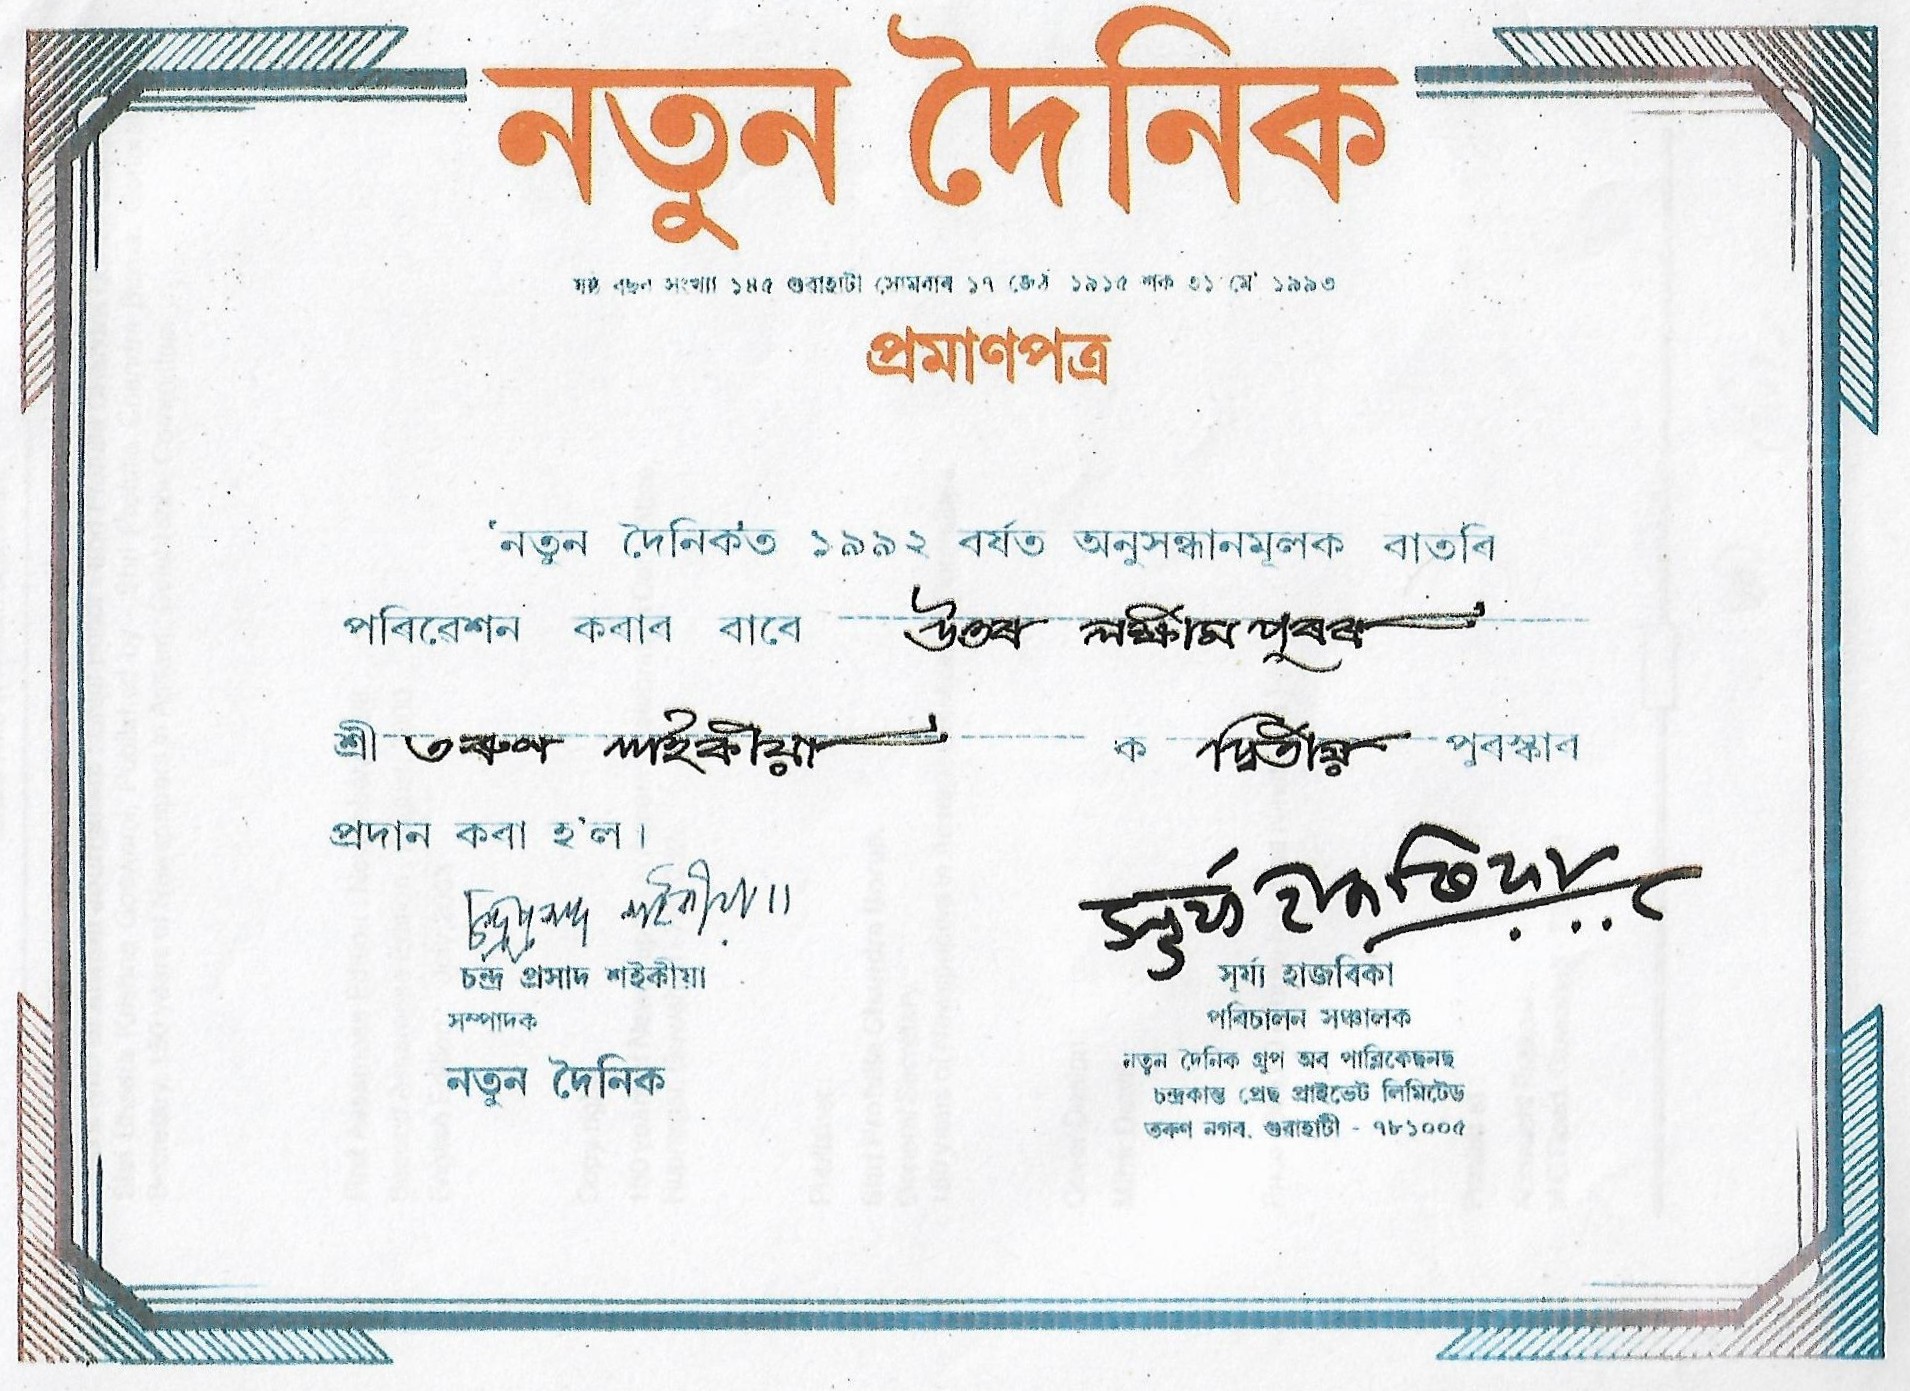 নতুন দৈনিক
ষষ্ঠ বছৰ সংখ্যা ১৪৫ গুৱাহাটী সোমবাৰ ১৭ জেঠ ১৯১৫ শক ৩১ মে' ১৯৯৩
প্ৰমাণপত্ৰ
'নতুন দৈনিক'ত ১৯৯২ বৰ্ষত অনুসন্ধানমূলক বাতৰি
পৰিৱেশন কৰাৰ বাবে উত্তৰ লক্ষীমপুৰৰ
শ্ৰী তৰুণ শইকীয়া ক দ্বিতীয় পুৰস্কাৰ
প্ৰদান কৰা হ'ল।
চন্দ্ৰপ্ৰসাদ শইকীয়া সূৰ্য্য হাজৰিকা
চন্দ্ৰ প্ৰসাদ শইকীয়া সূৰ্য্য হাজৰিকা
সম্পাদক পৰিচালন সঞ্চালক
নতুন দৈনিক নতুন দৈনিক গ্ৰুপ অব পাব্লিকেছনছ
চন্দ্ৰকান্ত প্ৰেছ প্ৰাইভেট লিমিটেড
তৰুণ নগৰ, গুৱাহাটী - ৭৮১০০৫